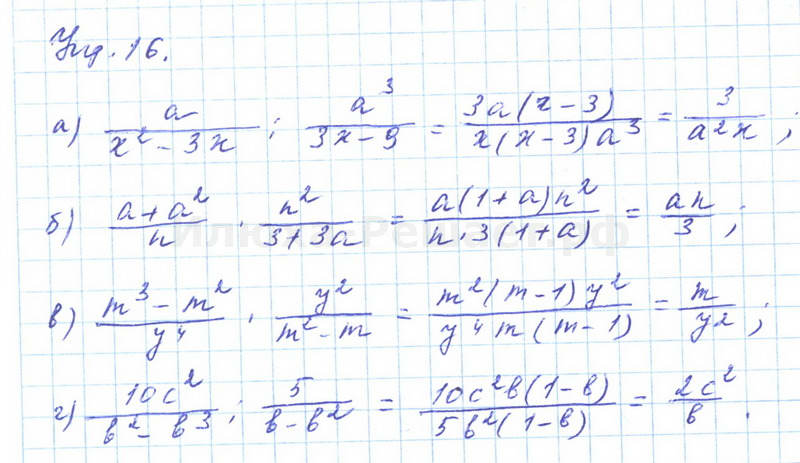 Упр. 16.
а) a / (x² - 3x) : a³ / (3x - 9) = 3a(x - 3) / (x(x - 3)a³) = 3 / (a²x) ;
б) (a + a²) / n · n² / (3 + 3a) = a(1 + a)n² / (n · 3(1 + a)) = an / 3 ;
в) (m³ - m²) / y⁴ · y² / (m² - m) = m²(m - 1)y² / (y⁴m(m - 1)) = m / y² ;
г) 10c² / (b² - b³) : 5 / (b - b²) = 10c²b(1 - b) / (5b²(1 - b)) = 2c² / b .